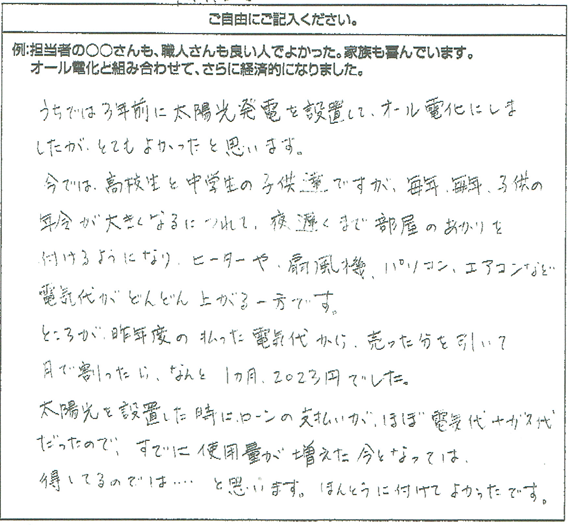 ご自由にご記入ください。
例:担当者の○○さんも、職人さんも良い人でよかった。家族も喜んでいます。
オール電化と組み合わせて、さらに経済的になりました。
うちでは3年前に太陽光発電を設置して、オール電化にしま
したが、とてもよかったと思います。
今では、高校生と中学生の子供達ですが、毎年、毎年、子供の
年令が大きくなるにつれて、夜遅くまで部屋のあかりを
付けるようになり、ヒーターや、扇風機、パソコン、エアコンなど
電気代がどんどん上がる一方です。
ところが、昨年度の払った電気代から、売った分を引いて
月で割ったら、なんと1カ月、2023円でした。
太陽光を設置した時に、ローンの支払いが、ほぼ電気代+ガス代
だったので、すでに使用量が増えた今となっては、
得してるのでは…‥と思います。ほんとうに付けてよかったです。